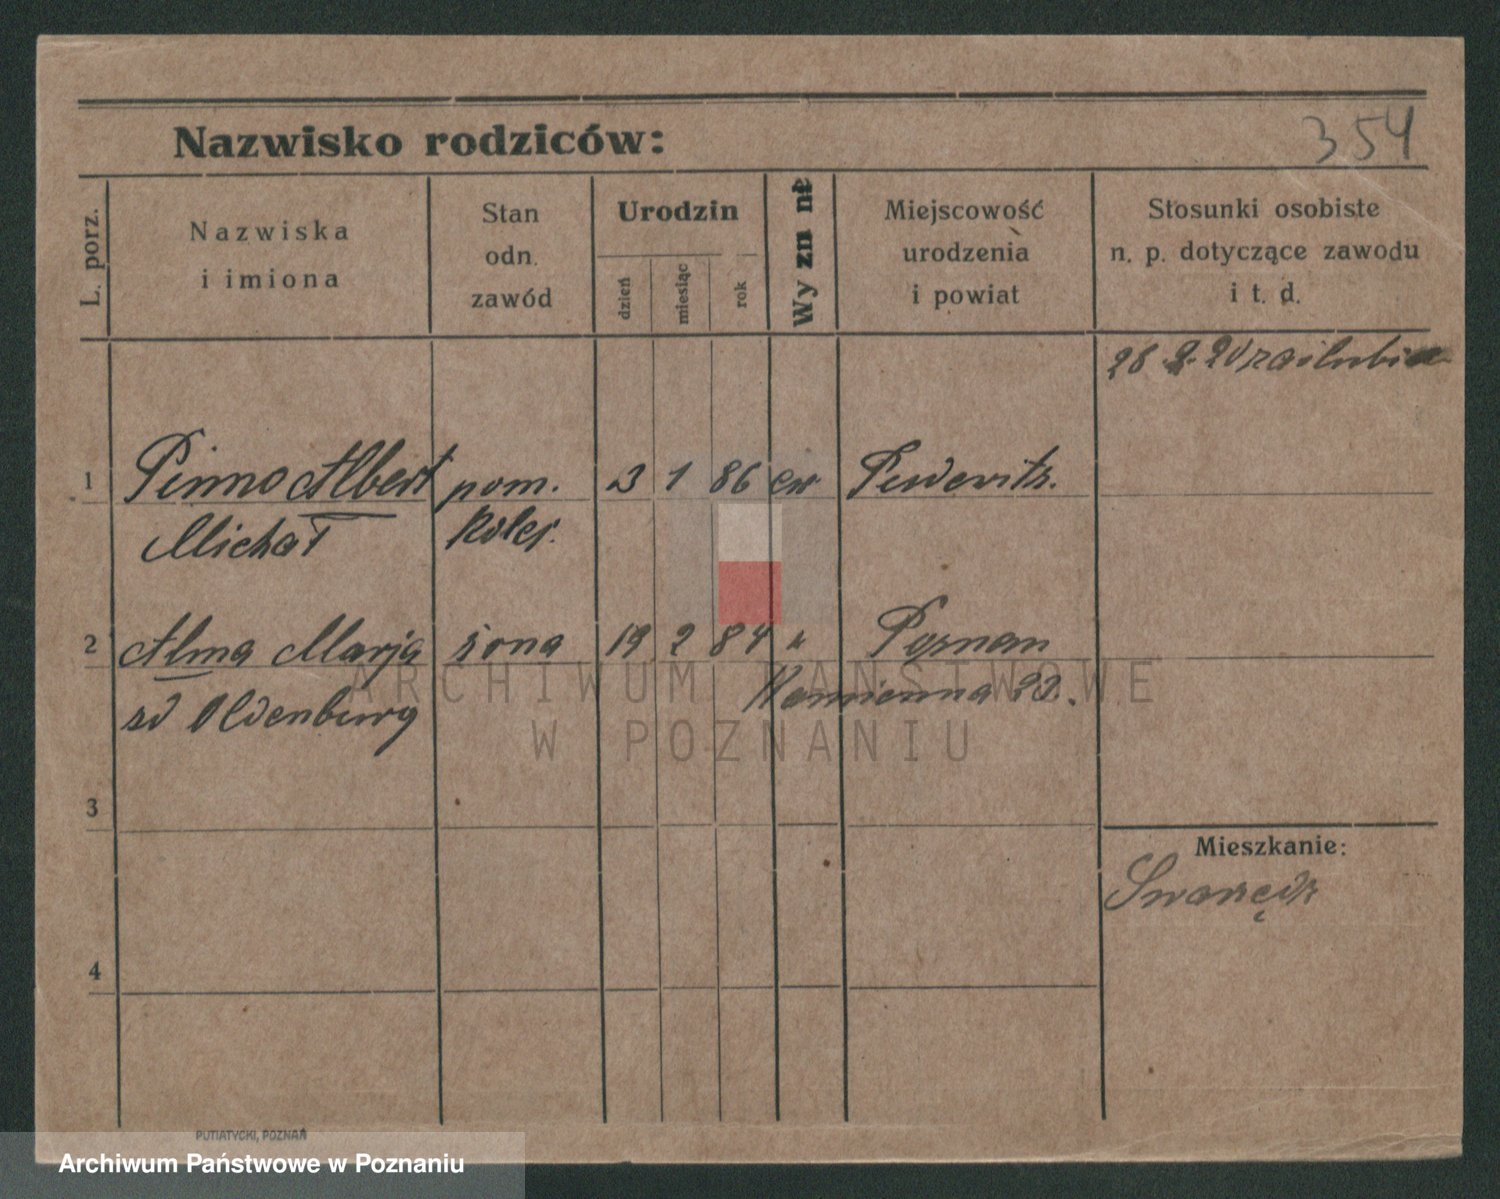 Nazwisko rodziców:
354
L. porz.
Nazwiska
i imiona
Stan
odn.
zawód
Urodzin
dzień
miesiąc
rok
Wyznnie
Miejscowość
urodzenia
i powiat
Stosunki osobiste
n. p. dotyczące zawodu
i t. d.
28 2. 20 zaślubien
1 Pinno Albert pom. 3 1 86 ew Pudewitz.
Michał kolej.
2 Alma Marja żona 19 2 84 " Poznan
zd Oldenburg Kamienna 22.
3
Mieszkanie:
Swarzędz
4
PUTIATYCKI, POZNAŃ
ARCHIWUM PAŃSTWOWE
W POZNANIU
Archiwum Państwowe w Poznaniu